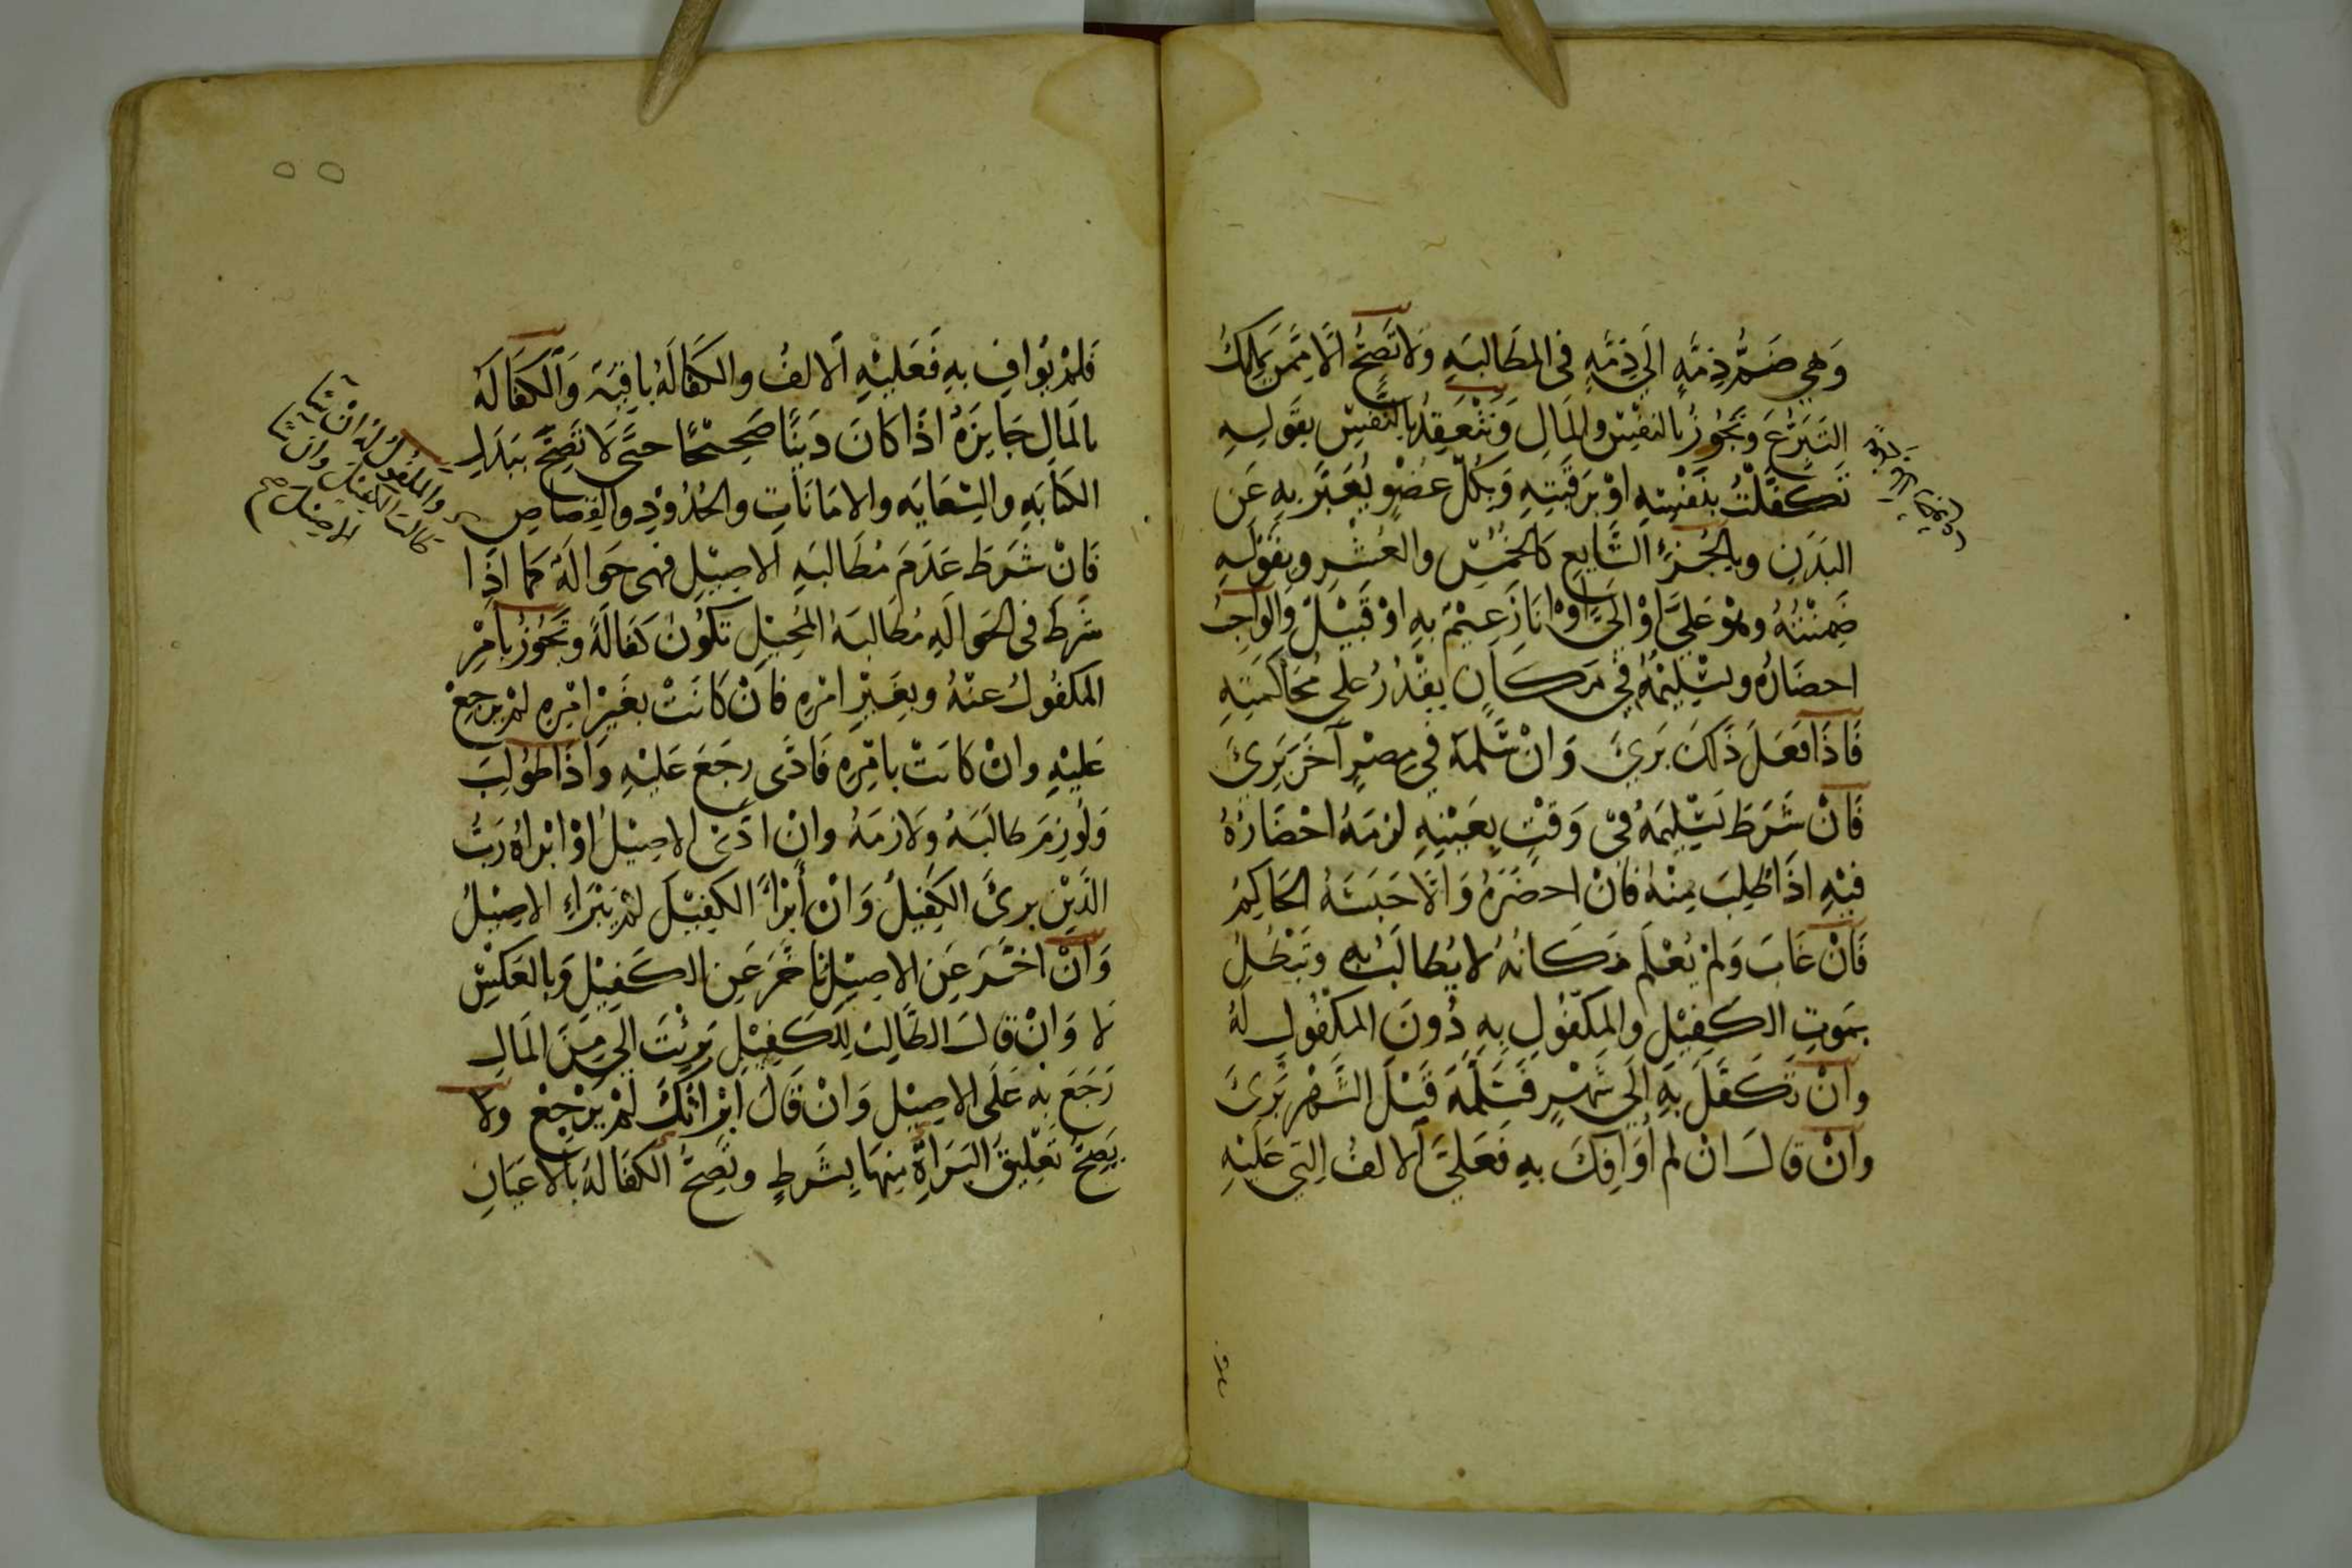 وَهِيَ ضَمُّ ذِمَّةٍ اِلَى ذِمَّةٍ فِي المطَالبَةِ وَلاَ تَصِحُّ الَّا مِمَّن يَملِكُ
التَبَرُّعَ وتَجُوزُ بالنفْسِ والمَالِ وَتَنْعَقِدُ بالنَّفْسِ بِقَولِهِ
تَكَفَّلْتُ بنَفْسِهِ اوْ برَقَبَتِهِ وَبِكُلِّ عُضْوٍ يُعَبَّرُ بِهِ عَنِ
البَدَنِ وبالجُزءِ الشَّايعِ كَالخُمْسِ والعُشْرِ وبقَوْلِهِ
ضَمِنْتُهُ وهُوَ عَلَيَّ اوْ الَيَّ اوْ انَا زَعِيْمٌ بِهِ اوْ قَبِيْلٌ وَالوَاجِبُ
احضَارُهُ وتسْلِيْمُهُ فِي مَكَانٍ يقْدِرُ عَلى مُحَاكَمَتِهِ
فَاذَا فَعَلَ ذَلكَ بَرِئَ وَانْ سَلَّمَهُ فِي مِصْرٍ آخَرَ بَرِئَ
فَانْ شَرَطَ تَسْلِيمَهُ فِي وَقْتٍ بِعَيْنِهِ لزمَهُ احْضَارُهُ
فيْهِ اذَا طُلِبَ مِنْهُ فَانْ احضَرَهُ وَالَّا حَبَسَهُ الحَاكِمُ
فَانْ غَابَ وَلَمْ يُعْلَم مَكَانُهُ لا يُطَالَبُ بِهِ وتَبْطُلُ
بمَوتِ الكَفِيْلِ والمَكْفُولِ بِهِ دُونَ المَكْفُولِ لَهُ
وانْ تَكَفَّلَ بِهِ اِلَى شَهْرٍ فَسَلَّمَهُ قَبْلَ الشَّهْرِ بَرِئَ
وانْ قَالَ انْ لم اوَافِكَ بِهِ فَعَلَيَّ الالفُ التِي عَلَيْهِ
فَلمْ يُوَافِ بهِ فَعَليْهِ الالفُ والكَفَالَةُ باقِيَة وَالكَفَالَةُ
بالمَالِ جَايزَةٌ اذَا كَانَ دَيْنًا صَحِيْحًا حتَّى لَا تَصِحَّ ببَدَلِ
الكتَابَةِ والسِّعَايَه والامَانَاتِ والحُدُوْدِ والقِصَاصِ
والمكفول لَهُ انْ شَا
طالب الكفيل وان شَا
الاصيل صح
فَانْ شَرَطَ عَدَمَ مُطَالبَةِ الاصِيْلِ فهي حَوَالَةٌ كما اذَا
شَرَطَ في الحَوالَةِ مُطَالبَةَ المُحِيْلِ تكُونُ كَفَالَةً وتَجُوزُ بامْرِ
المكفُولِ عنْهُ وبِغَيْرِ امْرِهِ فَانْ كَانَتْ بغَيْرِ امْرِهِ لمْ يرجِعْ
عَليْهِ وانْ كَانَتْ بامْرِهِ فَادَّى رجَعَ عَليْهِ وَاذَا طُولِبَ
وَلُوزِمَ طالَبَهُ وَلازمَهُ وانْ ادَّى الاصِيْلُ اوْ ابْراهُ رَبُّ
الدَيْنِ برئَ الكَفِيْلُ وَانْ أَبْرَأَ الكفِيْلَ لمْ يَبْراءِ الاصِيْلُ
وَانْ اخَّرَ عَنِ الاصِيْلِ تاخَّرَ عَنِ الكَفِيْلِ وَبالعَكْسِ
لا وَانْ قَالَ الطَّالِبُ لِلكَفِيْلِ بَرِئْتَ الَيَّ مِنَ المَالِ
رَجَعَ بِهِ عَلَى الاصِيْلِ وَانْ قَالَ ابْرَاتُكَ لمْ يَرْجِعْ وَلا
يَصِحُّ تَعْلِيقُ البَرَاةِ مِنْهَا بِشَرطٍ وتَصِحُّ الكفَالَةُ بالاعيَانِ